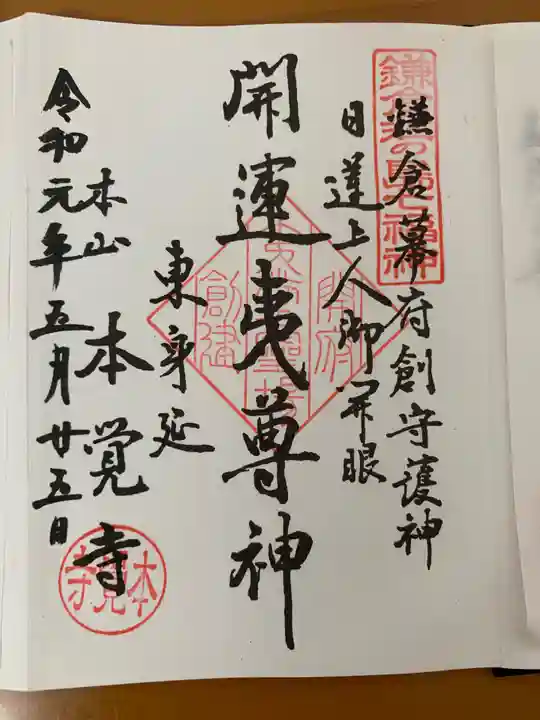 鎌倉幕府創守護神
日蓮上人御開眼
開運夷尊神
東身延
本山 本覚寺
令和元年五月廿五日
鎌倉江の島七福神
開府
創建
本覚寺